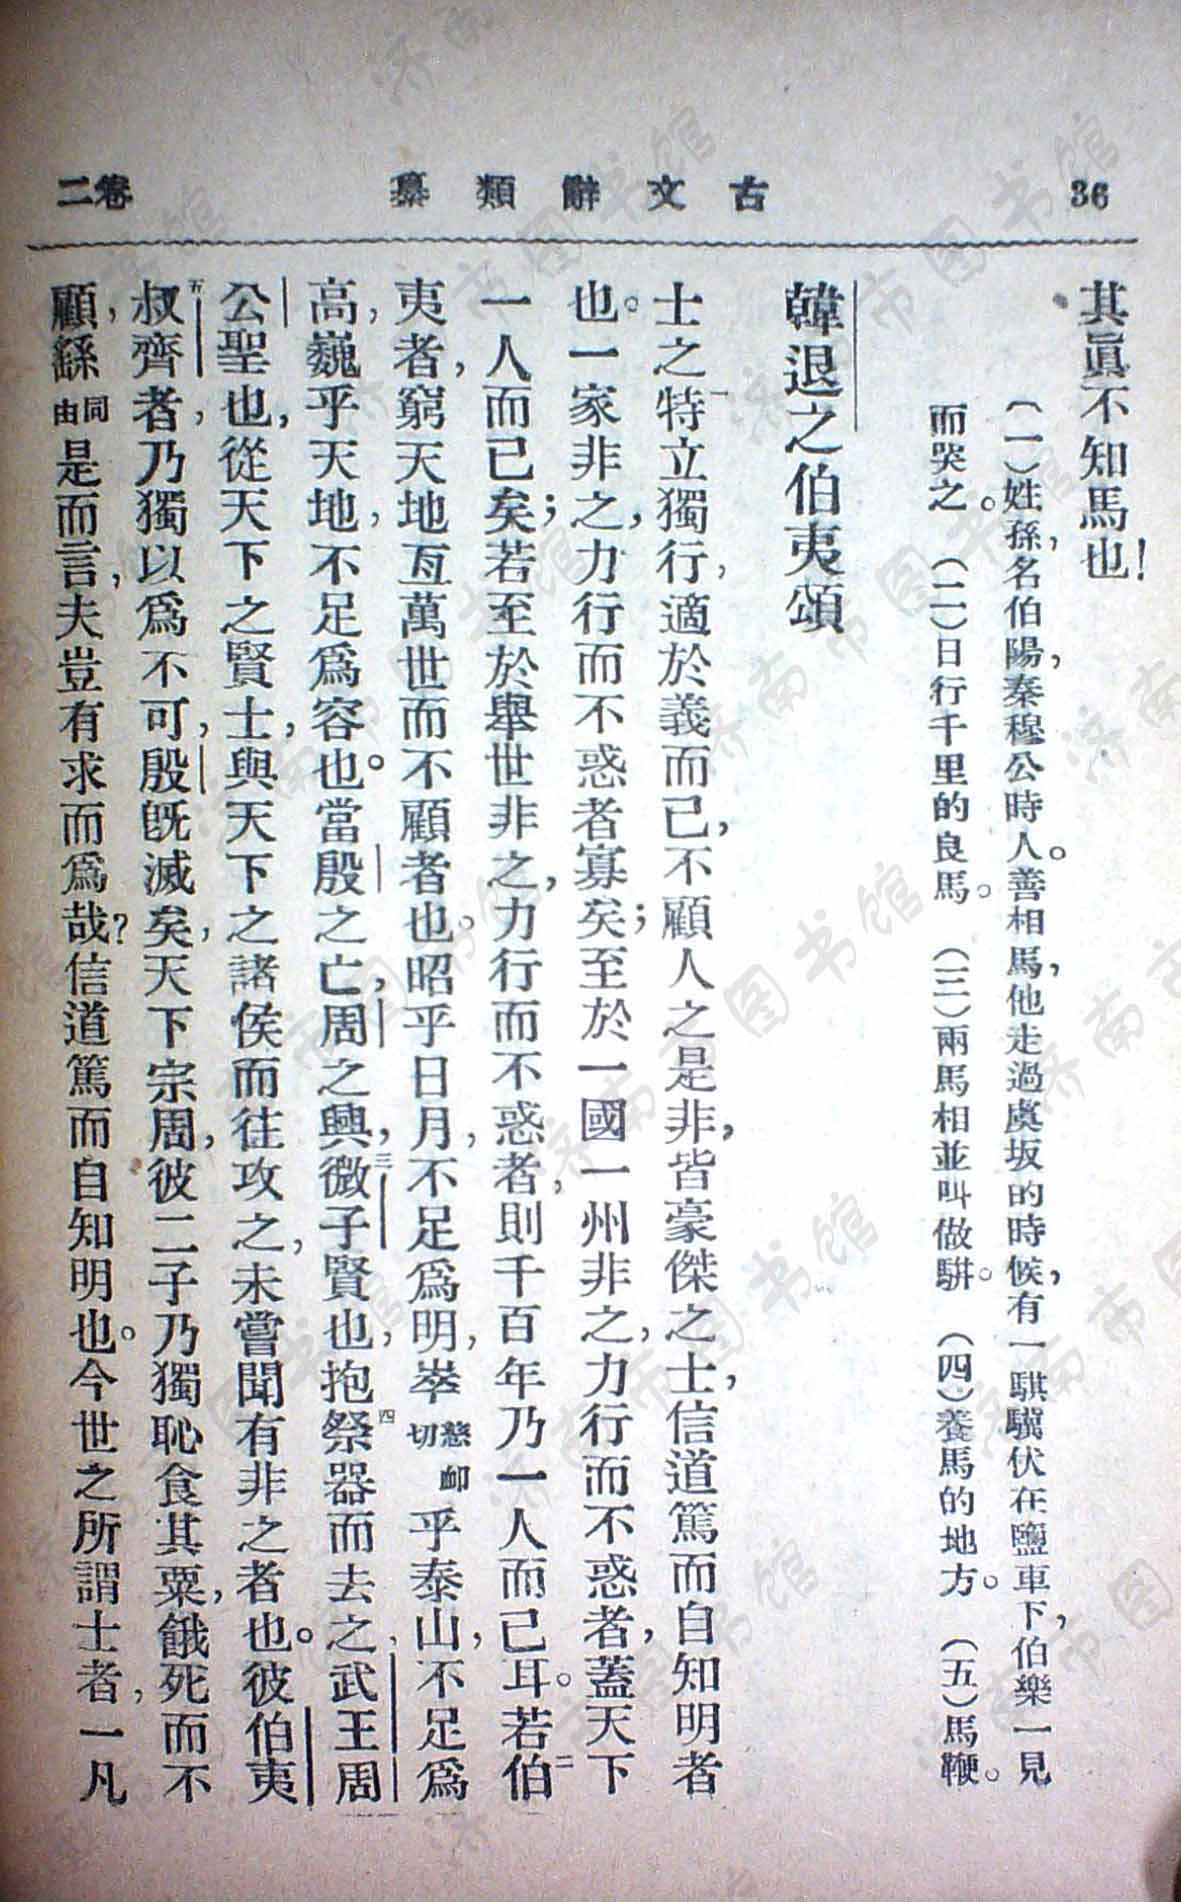 36　古文辭類纂　卷二
其眞不知馬也！
（一）姓孫，名伯陽，秦穆公時人。善相馬，他走過虞坂的時候，有一騏驥伏在鹽車下，伯樂一見
而哭之。（二）日行千里的良馬。（三）兩馬相並叫做駢。（四）養馬的地方。（五）馬鞭。
韓退之伯夷頌
士之特一立獨行，適於義而已，不顧人之是非，皆豪傑之士，信道篤而自知明者
也。一家非之，力行而不惑者寡矣；至於一國一州非之，力行而不惑者，蓋天下
一人而已矣；若至於舉世非之，力行而不惑者，則千百年乃一人而已耳。若伯二
夷者，窮天地亙萬世而不顧者也。昭乎日月，不足爲明，崒慈卹切乎泰山，不足爲
高，巍乎天地，不足爲容也。當殷之亡，周之興，微三子賢也，抱祭四器而去之，武王周
公聖也，從天下之賢士，與天下之諸侯而往攻之，未嘗聞有非之者也。彼伯夷
叔五齊者，乃獨以爲不可，殷旣滅矣，天下宗周，彼二子乃獨恥食其粟，餓死而不
顧，繇同由是而言，夫豈有求而爲哉？信道篤而自知明也。今世之所謂士者，一凡
济南市图书馆